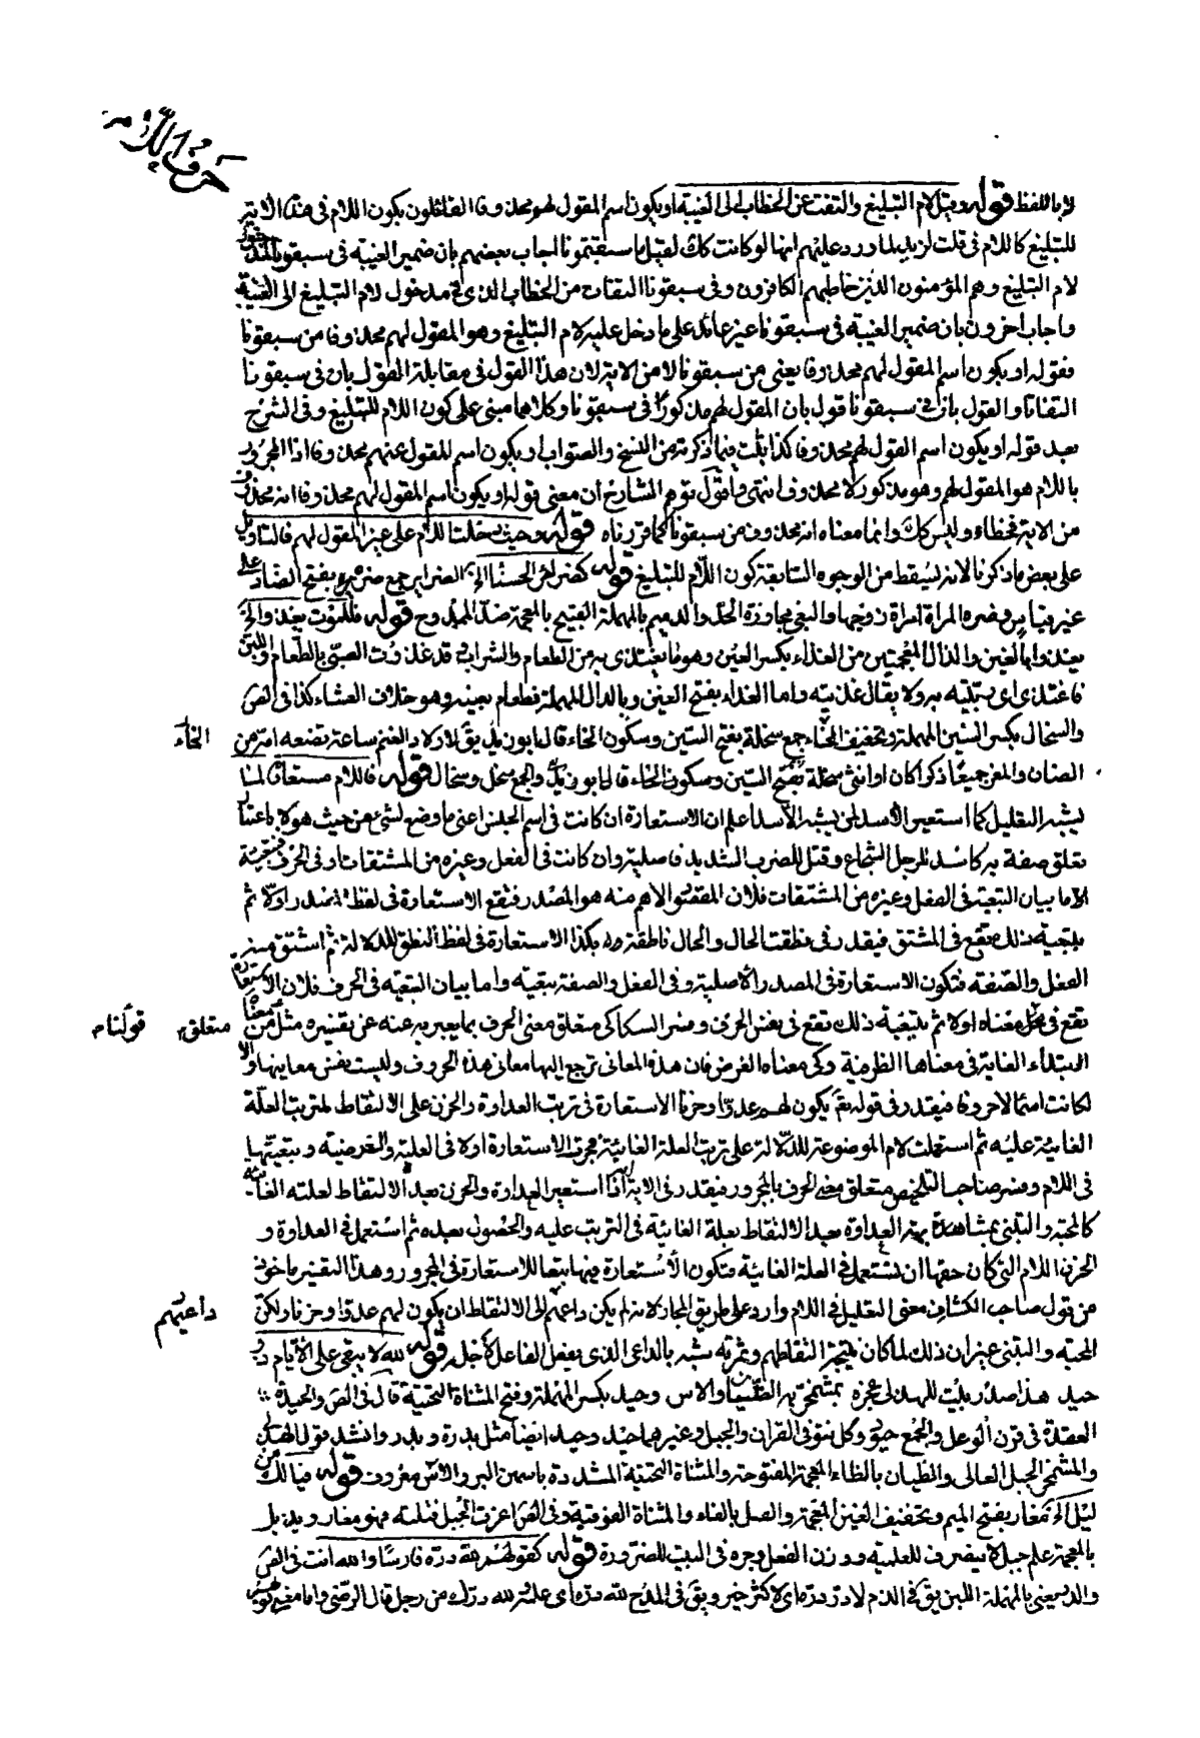 حرف اللام
لا باللفظ قوله وقيل لام التبليغ والتفت عن الخطاب الى الغيبة او يكون اسم المقول لهم محذوفا القائلون بكون اللام فى هذه الاية
للتبليغ كاللام فى قلت لزيد لما ورد عليهم انها لو كانت كك لقيل ما سبقتمونا اجاب بعضهم بان ضمير الغيبة فى سبقونا
لام التبليغ وهم المؤمنون الذين خاطبهم الكافرون وفى سبقونا التفات من الخطاب الذى فى مدخول لام التبليغ الى الغيبة
واجاب اخرون بان ضمير الغيبة فى سبقونا غير عائد على ما دخل عليه لام التبليغ وهو المقول لهم محذوفا من سبقونا
فقوله او يكون اسم المقول لهم محذوفا يعنى من سبقونا لا من الاية لان هذا القول فى مقابلة القول بان فى سبقونا
التفاتا والقول بان فى سبقونا قول بان المقول لهم مذكورا فى سبقونا وكلاهما مبنى على كون اللام للتبليغ وفى الشرح
بعد قوله او يكون اسم المقول لهم محذوفا كذا ثبت فيما ذكرته من النسخ والصواب او يكون اسم المقول عنهم محذوفا اذ المجرور
باللام هو المقول لهم وهو مذكور لا محذوف انتهى واقول توهم الشارح ان معنى قوله او يكون اسم المقول لهم محذوفا انه محذوف
من الاية فخطاه وليس كك وانما معناه انه محذوف من سبقونا كما قررناه قوله وحيث دخلت اللام على غير المقول له فالتاويل
على بعض ما ذكرنا لانه ليسقط من الوجوه السابقة كون اللام للتبليغ قوله كضرائر الحسناء الخ الضراير جمع ضرة بفتح الضاد على
غير قياس وضره المراة امراة زوجها والبغى مجاوزة الحد والدميم بالمهملة القبيح بالمعجمة ضد الممدوح قوله فللموت يغذوا الخ
يغذوا بالغين والذال المعجمتين من الغذاء بكسر العين وهو ما يغتذى به من الطعام والشراب قد غذوت الصبى بالطعام واللبن
فاغتذى اى ربيته به ولا يقال غذيته واما الغداء بفتح الغين وبالدال المهملة فطعام بعينه وهو خلاف العشاء كذا فى الص
والسخال بكسر السين المهملة وتخفيف الخاء جمع سخلة بفتح السين وسكون الخاء قال ابو زيد يق لاولاد الغنم ساعة تضعه امه من
الخاء
الضان والمعز جميعا ذكرا كان او انثى سخلة بفتح السين وسكون الخاء قال ابو زيد والجمع سخل وسخال قوله فاللام مستعارة لما
يشبه التعليل كما استعير الاسد لمن يشبه الاسد اعلم ان الاستعارة ان كانت فى اسم الجنس اعنى ما وضع لشئ من حيث هو لا باعتبار
تعلق صفة به كاسد للرجل الشجاع وقتل للضرب الشديد فاصلية وان كانت فى الفعل وغيره من المشتقات او فى الحرف فتبعية
اما بيان التبعية فى الفعل وغيره من المشتقات فلان المقصود الاهم منه هو المصدر فتقع الاستعارة فى لفظ المصدر اولا ثم
بتبعية ذلك تقع فى المشتق فيقدر فى نطقت الحال والحال ناطقة بكذا الاستعارة فى لفظ النطق للدلالة ثم اشتق منه
الفعل والصفة فتكون الاستعارة فى المصدر الاصلية وفى الفعل والصفة تبعية واما بيان التبعية فى الحرف فلان الاستعارة
تقع فى معناه اولا ثم بتبعية ذلك تقع فى نفس الحرف وفسر السكاكى متعلق معنى الحرف بما يعبر به عنه عن تفسيره مثل من معناه
متعلق قولنا م
ابتداء الغاية فى معناها الظرفية وكى معناه الغرض فان هذه المعانى ترجع اليها معانى هذه الحروف وليست نفس معانيها والا
لكانت اسما لا حروفا فيقدر فى قوله تع ليكون لهم عدوا وحزنا الاستعارة فى ترتب العداوة والحزن على الالتقاط لترتب العلة
الغائية عليه ثم استعملت لام الموضوعة للدلالة على ترتب العلة الغائية فجرت الاستعارة اولا فى العلية والغرضية وبتبعيتها
فى اللام وفسر صاحب التلخيص متعلق معنى الحرف بالمجرور فيقدر فى الاية انه استعير العداوة والحزن بعد الالتقاط لعلته الغائية
كالمحبة والتبنى بمشاهدة العداوة بعد الالتقاط بعلة الغائية فى الترتب عليه والحصول بعده ثم استعمل فى العداوة و
الحزن اللام التى كان حقها ان تستعمل فى العلة الغائية فتكون الاستعارة فيها تبعا للاستعارة فى المجرور وهذا التفسير ماخوذ
من قول صاحب الكشاف معنى التعليل فى اللام وارد على طريق المجاز لانه لم يكن داعيهم الى الالتقاط ان يكون لهم عدوا وحزنا ولكن
داعيتهم
المحبة والتبنى غير ان ذلك لما كان نتيجة التقاطهم وثمرته شبه بالداعى الذى يفعل الفاعل لاجله قوله لله لا يبقى على الايام ذو
حيد هذا صدر بيت للهذلى عجزه بمشمخر به الظيان والاس وحيد بكسر المهملة وفتح المثناة التحتية قال فى الص والحيدة
العقدة فى قرن الوعل والجمع حيود وكل نتو فى القران والجبل وغيرهما حيد وحيد ايضا مثل بدرة وبدر وانشد قول الهذلى
والمشمخر الجبل العالى والظيان بالظاء المعجمة المفتوحة والمثناة التحتية المشددة ياسمين البر والاس معروف قوله فيا لك من
ليل الخ مغار بفتح الميم وتخفيف الغين المعجمة والفتل بالفاء والمثناة الفوقية وفى الص اغرت الحبل فتلته فهو مغار ويذبل
بالمعجمة علم جبل لا ينصرف للعلمية ووزن الفعل وجره فى البيت للضرورة قوله كقولهم لله دره فارسا والله انت فى الص
والدر يعنى بالمهملة اللبن يق فى الذم لا در دره اى لا كثر خيره ويق فى المدح لله دره اى عمله ولله درك من رجل قال الرضى واما معنى قولهم